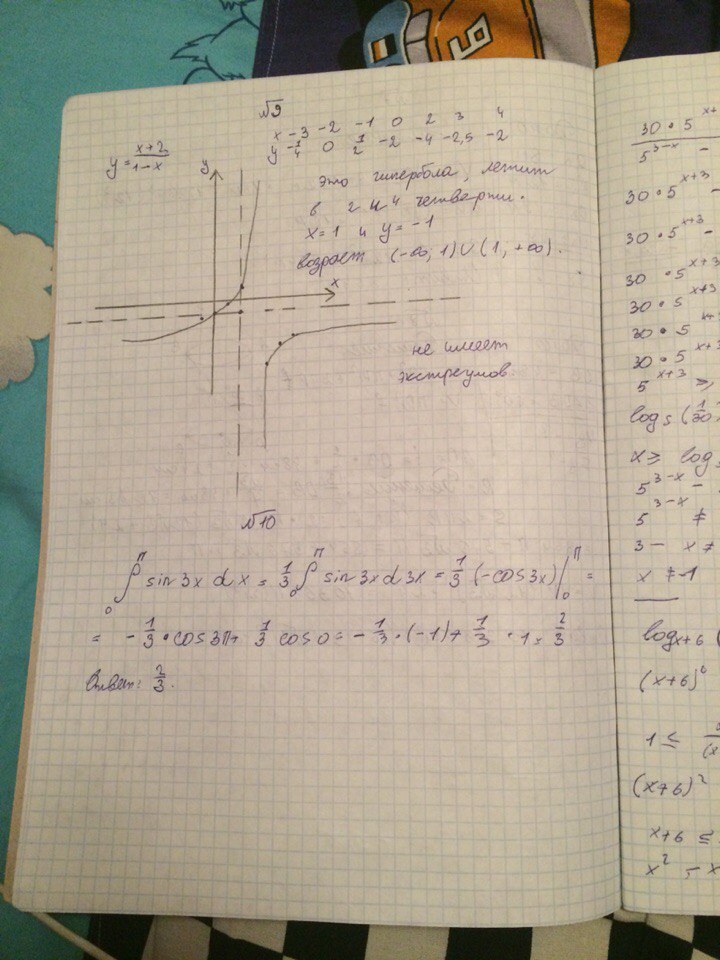 √9
x -3 -2 -1 0 2 3 4
y -1/4 0 1/2 -2 -4 -2,5 -2
y = (x+2)/(1-x)
y
это гипербола, лежит
в 2 и 4 четверти.
x=1 и y=-1
возраст (-∞, 1) ∪ (1, +∞).
x
не имеет
экстремумов.
√10
∫₀^π sin 3x dx = 1/3 ∫₀^π sin 3x d 3x = 1/3 (-cos 3x) |₀^π =
= -1/3 · cos 3π + 1/3 cos 0 = -1/3 · (-1) + 1/3 · 1 = 2/3
Ответ: 2/3.
30 · 5^x+
5^3-x -
30 · 5^x+3 -
30 · 5^x+3 -
30 · 5^x+3
30 · 5^x+3
30 · 5^x+
30 · 5^x+3
5^x+3 ≥
log₅ (1/30
x ≥ log₅
5^3-x -
5^3-x ≠
3 - x ≠
x ≠ -1
log x+6 (
(x+6)⁶
1 ≤
(x
(x+6)²
x+6 ≤
x² - x